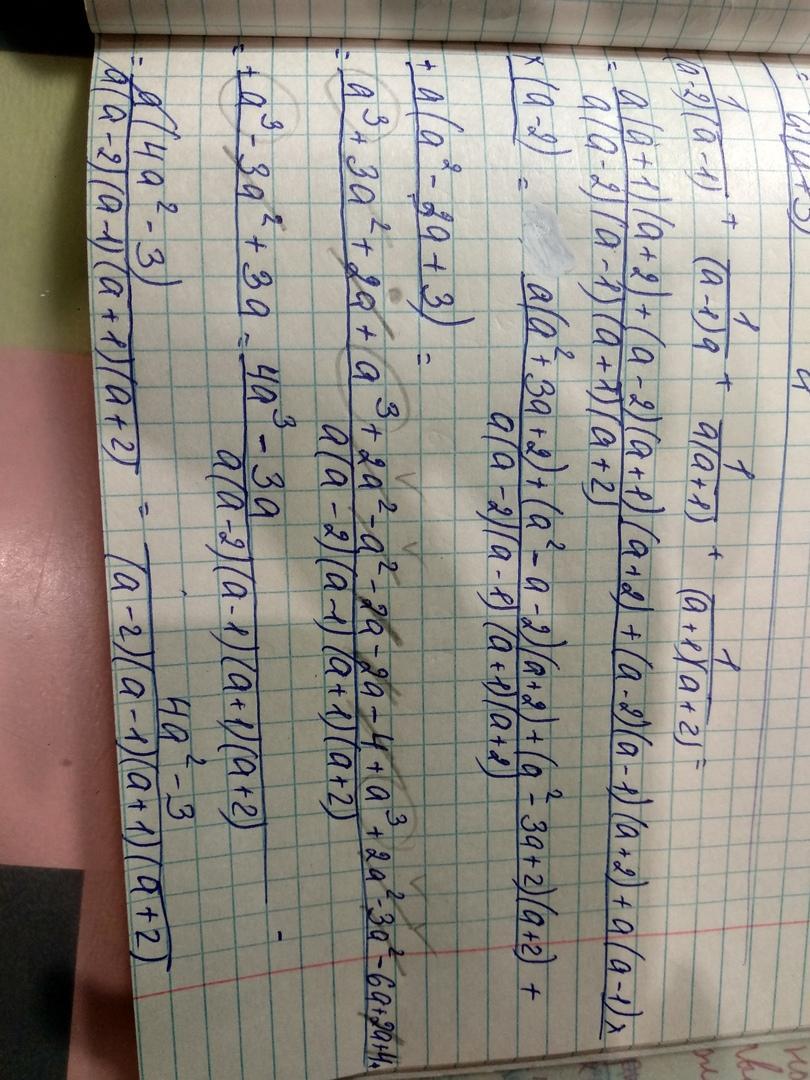 1/((a-2)(a-1)) + 1/((a-1)a) + 1/(a(a+1)) + 1/((a+1)(a+2)) =
= (a(a+1)(a+2)+(a-2)(a+1)(a+2)+(a-2)(a-1)(a+2)+a(a-1)×
a(a-2)(a-1)(a+1)(a+2)
×(a-2) = a(a²+3a+2)+(a²-a-2)(a+2)+(a²-3a+2)(a+2)+
a(a-2)(a-1)(a+1)(a+2)
+a(a²-2a+3) =
= a³+3a²+2a+a³+2a²-a²-2a-2a-4+a³+2a²-3a²-6a+2a+4+
a(a-2)(a-1)(a+1)(a+2)
= +a³-3a²+3a = 4a³-3a
a(a-2)(a-1)(a+1)(a+2)
= a(4a²-3) = 4a²-3
a(a-2)(a-1)(a+1)(a+2) (a-2)(a-1)(a+1)(a+2)